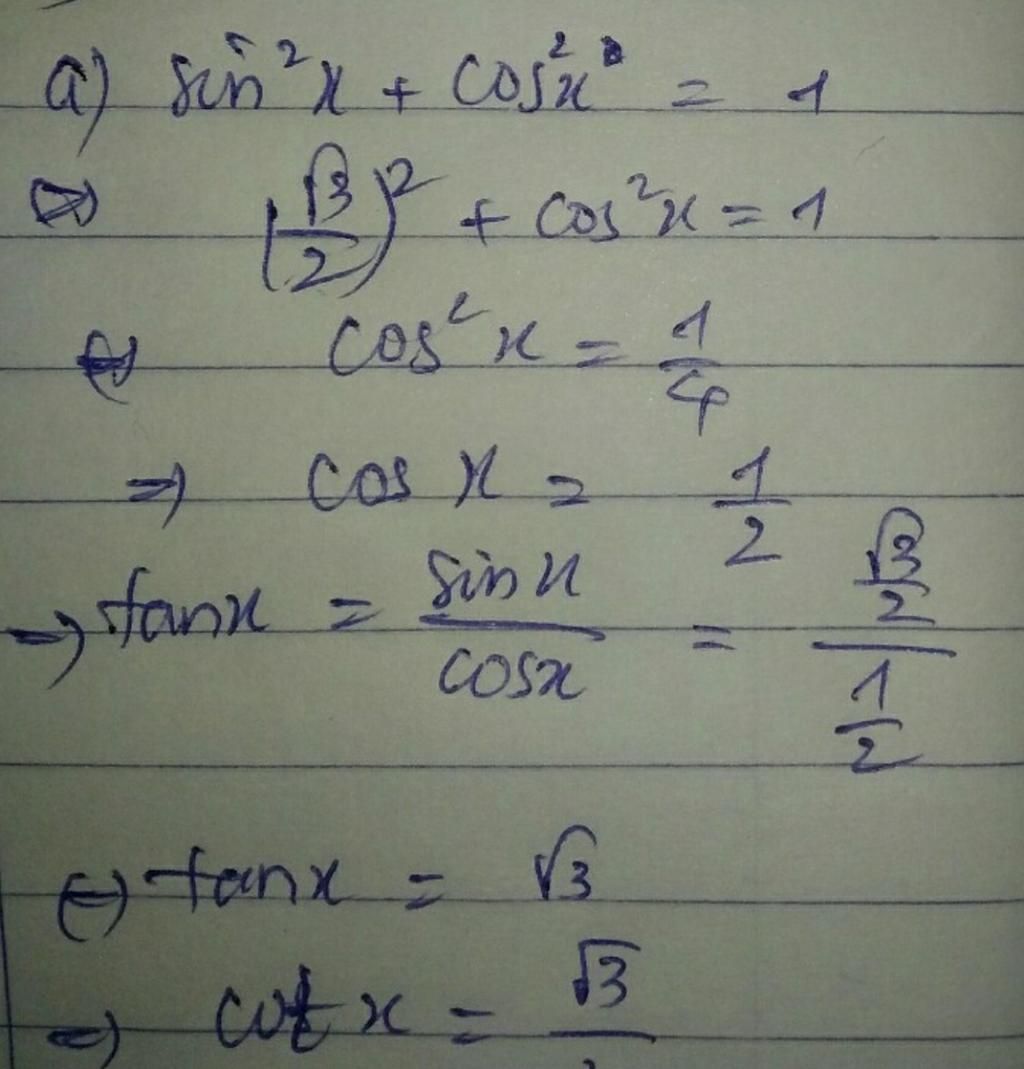 a) sin²x + cos²x = 1
⇔ (√3/2)² + cos²x = 1
⇔ cos²x = 1/4
⇒ cos x = 1/2
⇒ tanx = sinx/cosx = (√3/2)/(1/2)
⇔ tanx = √3
⇒ cot x = √3/